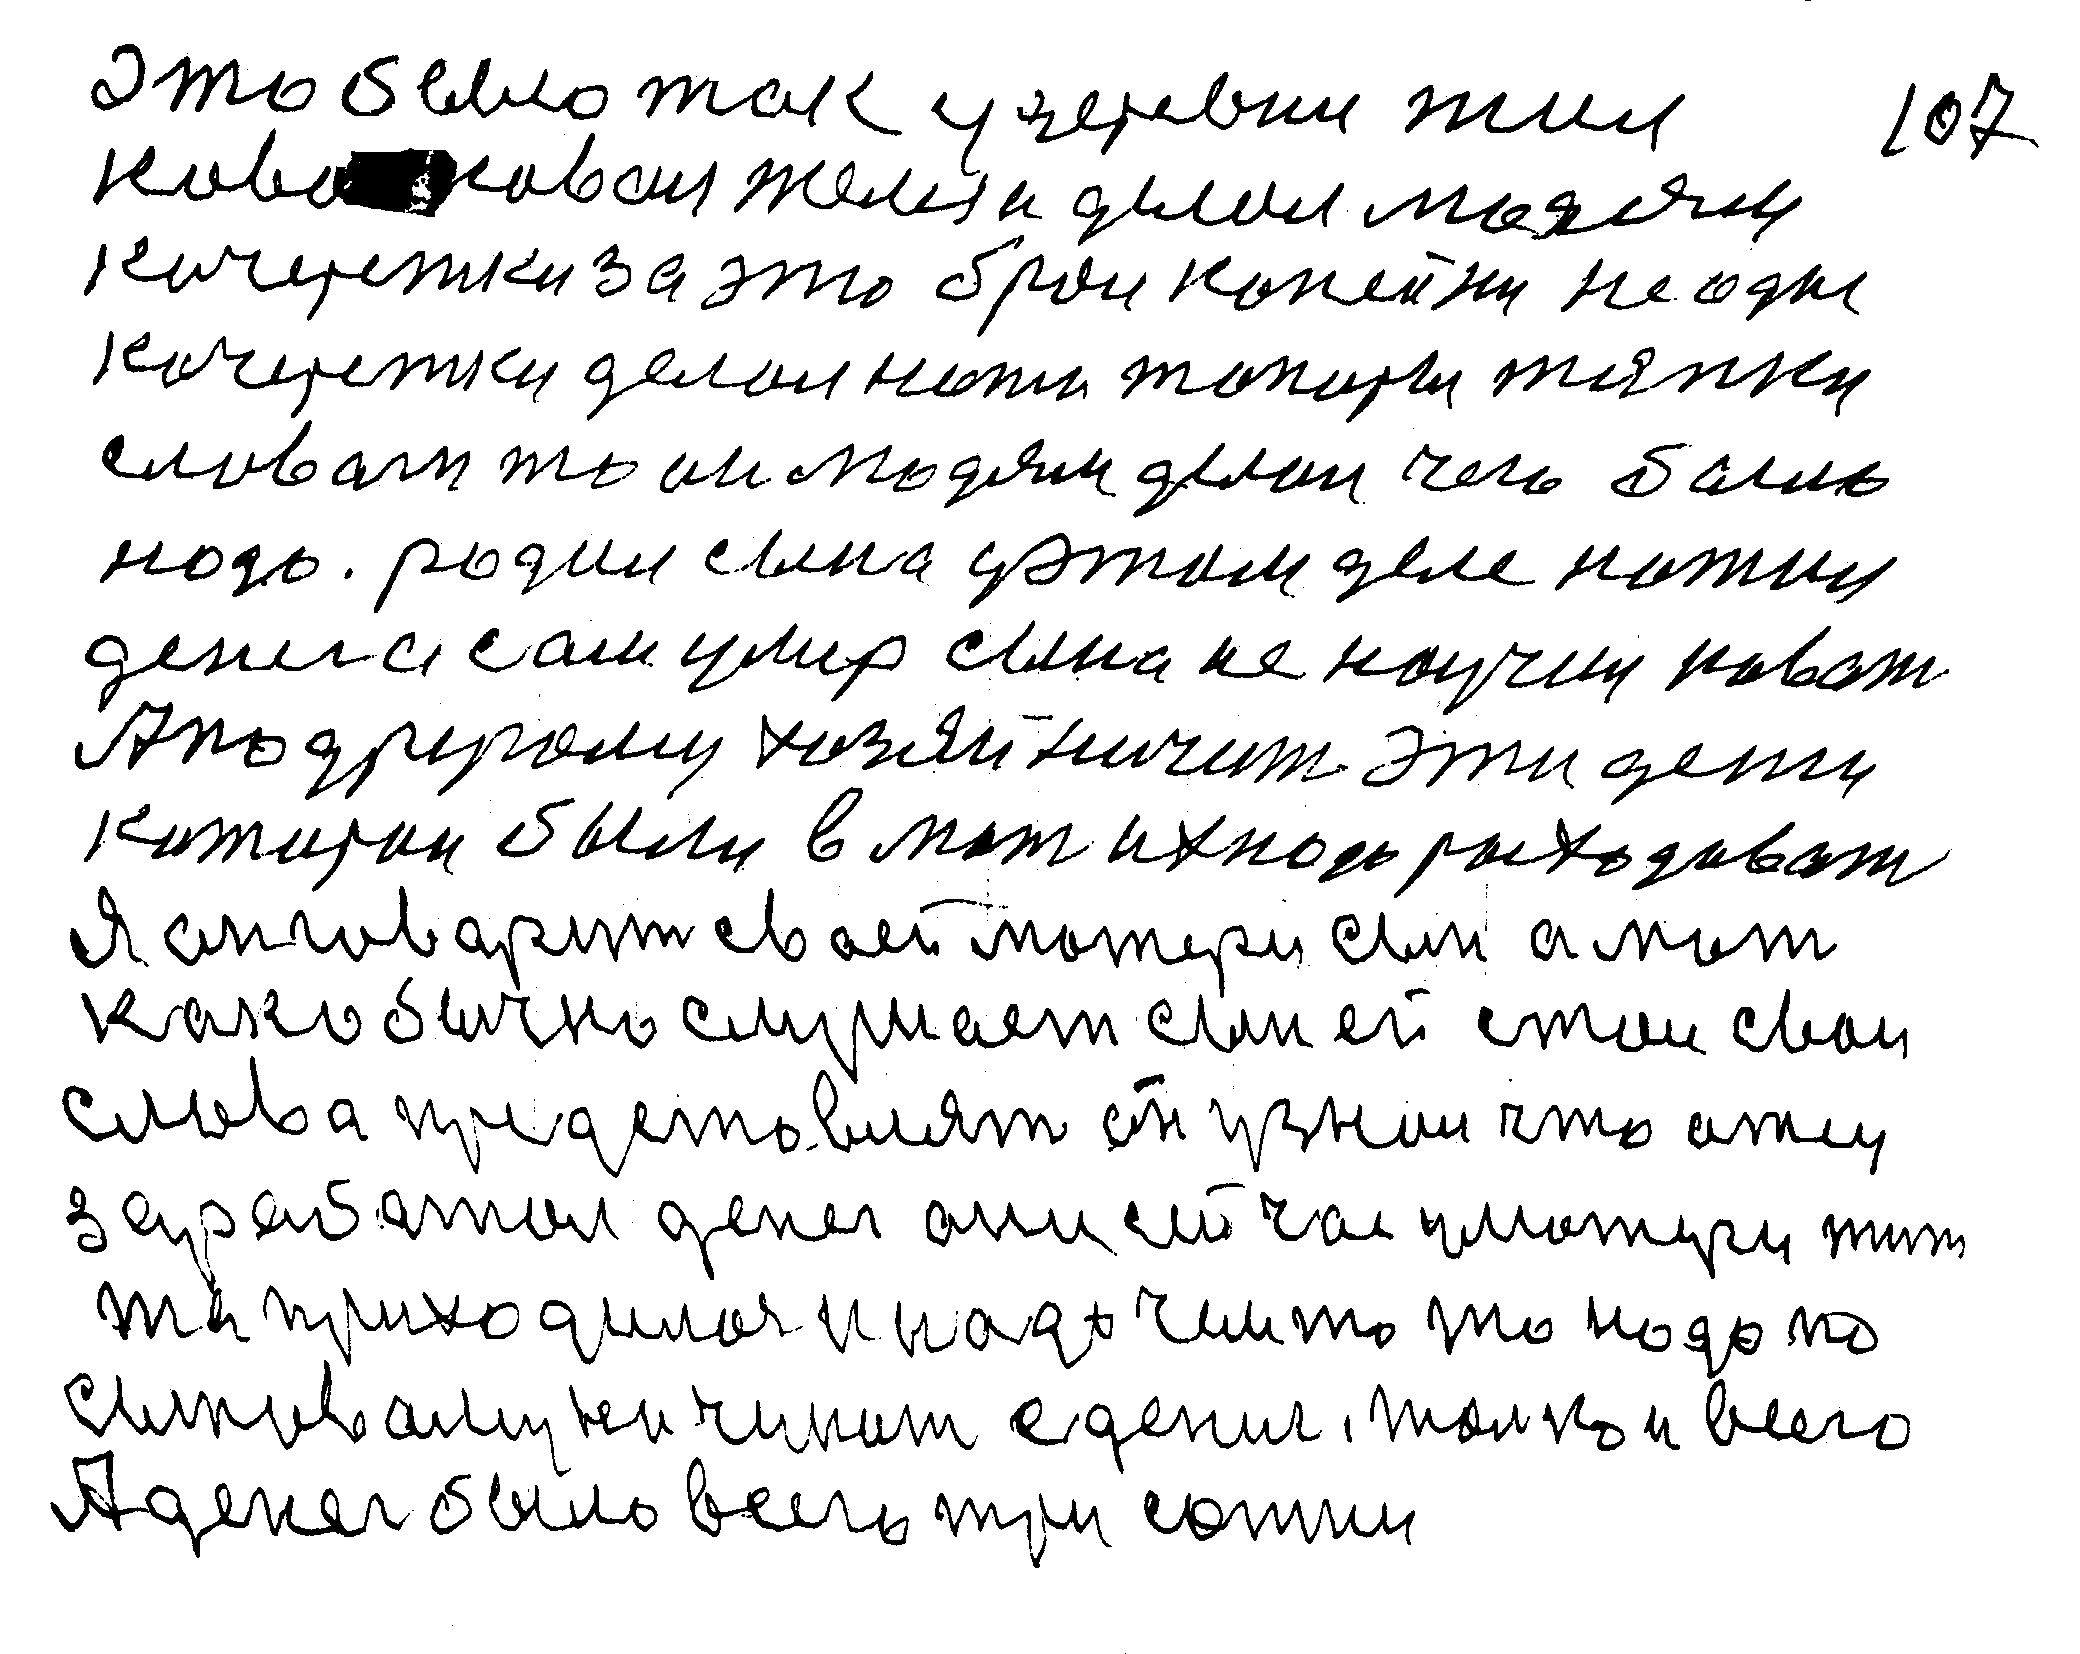 это было так у деревни жил 107
кова ковал желези делал людями
кочережки за это брал копейки не одне
кочережки делал ножи топоры тяпки
словам то он людям делал чего было
нодо. родил сына уэтом деле нажил
денег а сам умер сына не научил коват
А по другому хозяйничит эти дети
которои были в мот их нодо расходоват
Я он говарит своей мотери сын а мот
как обычно слушает сын ей стал свои
слова предстовлят он узнал что отец
заработал денег они сейчас умотери жит
та приходилоя и надо чимто то нодо по
сынковому ни чинат с денег, толко и всего
А денег было всего три сотни